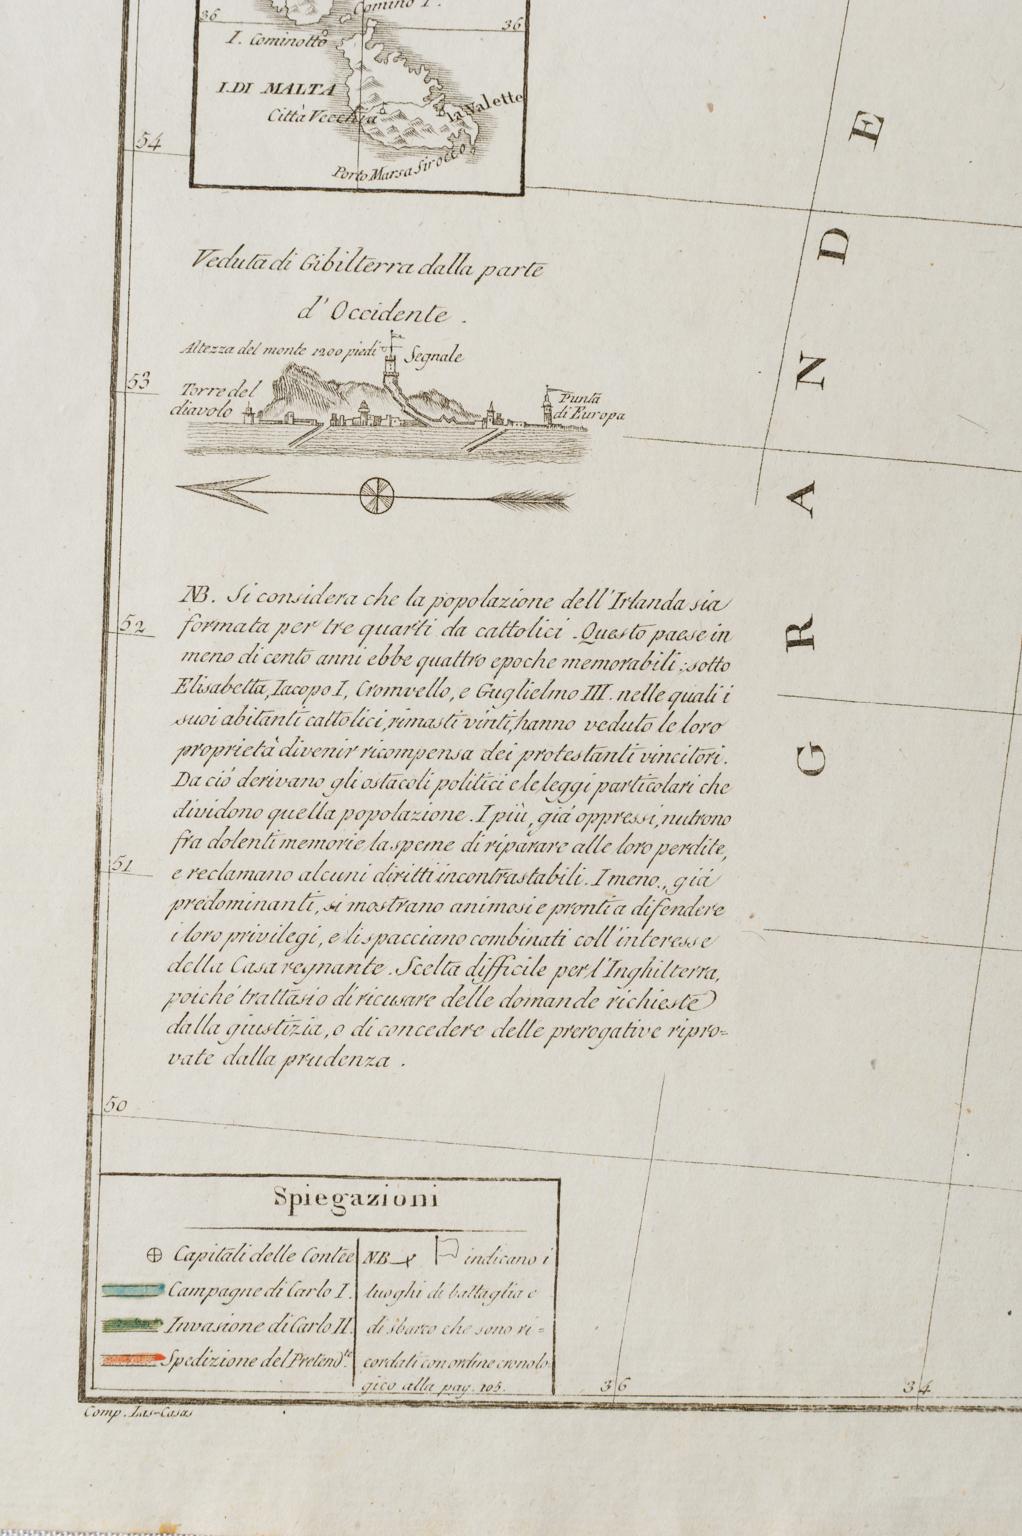 Comino I.
36
36
I. Cominotto
I. DI MALTA
la Valette
Città Vecchia
Porto Marsa Sirocco
54
Veduta di Gibilterra dalla parte
d'Occidente .
Altezza del monte 1200 piedi
Segnale
53
Torre del
diavolo
Punta
di Europa
NB. Si considera che la popolazione dell'Irlanda sia
52
formata per tre quarti da cattolici . Questo paese in
meno di cento anni ebbe quattro epoche memorabili ; sotto
Elisabetta, Iacopo I, Cromvello, e Guglielmo III. nelle quali i
suoi abitanti cattolici, rimasti vinti, hanno veduto le loro
proprietà divenir ricompensa dei protestanti vincitori.
Da ció derivano gli ostacoli politici e le leggi particolari che
dividono quella popolazione . I più, giá oppressi, nutrono
fra dolenti memorie la speme di riparare alle loro perdite,
51
e reclamano alcuni diritti incontrastabili. I meno., giá
predominanti, si mostrano animosi e pronti a difendere
i loro privilegi, e li spacciano combinati coll'interesse
della Casa regnante . Scelta difficile per l'Inghilterra,
poiché trattasi o di ricusare delle domande richieste
dalla giustizia, o di concedere delle prerogative ripro=
vate dalla prudenza .
50
GRANDE
Spiegazioni
Capitali delle Contee
Campagne di Carlo I.
Invasione di Carlo II.
Spedizione del Pretend.te
NB. indicano i
luoghi di battaglia e
di sbarco che sono ri=
cordati con ordine cronolo-
gico alla pag. 105.
36
34
Comp. Las-Casas